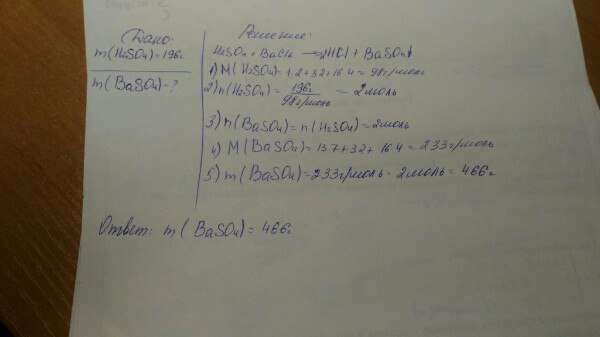 Дано:
m(H₂SO₄)=196г
m(BaSO₄)-?
Решение:
H₂SO₄ + BaCl₂ → 2HCl + BaSO₄↓
1) M(H₂SO₄)=1·2+32+16·4=98г/моль
2) n(H₂SO₄)= 196г / 98г/моль = 2моль
3) n(BaSO₄)=n(H₂SO₄)=2моль
4) M(BaSO₄)=137+32+16·4=233г/моль
5) m(BaSO₄)=233г/моль · 2моль=466г
Ответ: m(BaSO₄)=466г